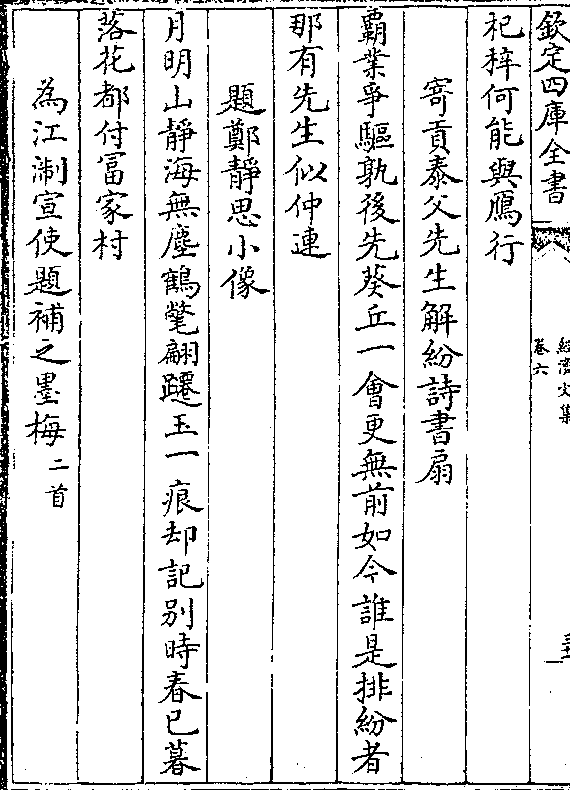 欽定四庫全書
經濟文集
卷六
杞梓何能與鴈行
寄貢泰父先生解紛詩書扇
覇業爭驅孰後先葵丘一會更無前如今誰是排紛者
那有先生似仲連
題鄭靜思小像
月明山靜海無塵鶴氅翩躚玉一痕却記別時春已暮
落花都付冨家村
為江淛宣使題補之墨梅二首